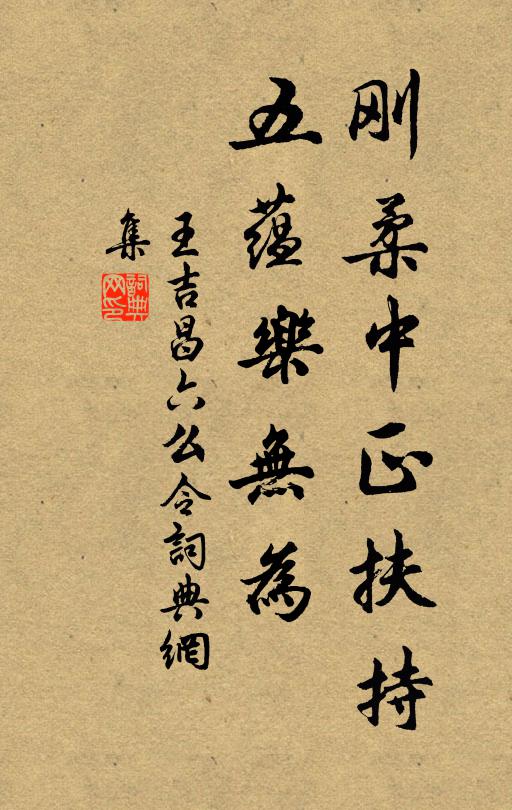 刚柔中正扶持
五蕴樂無為
王吉昌六么令詞典網
集
詞典
网印